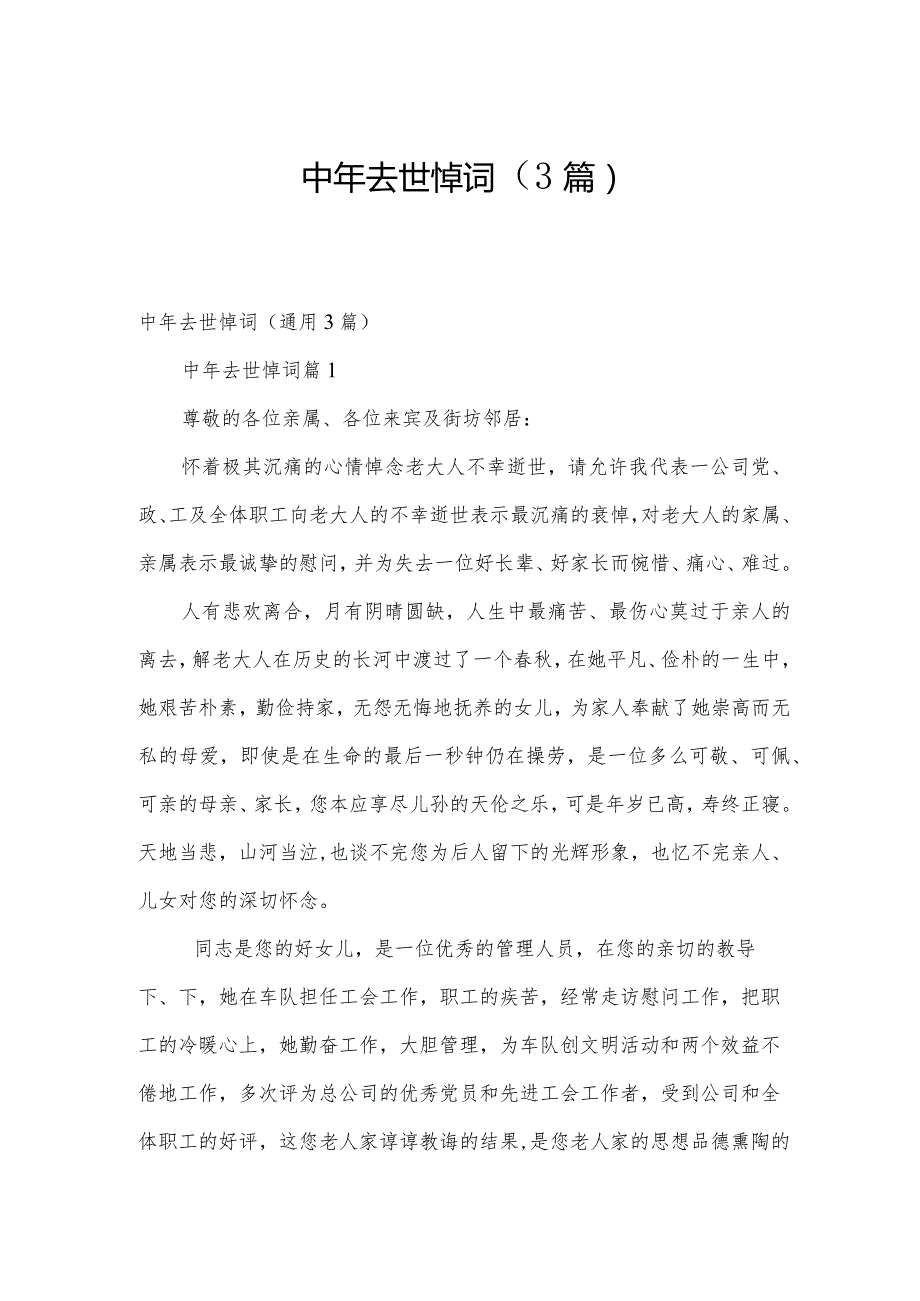 中年去世悼词（3 篇）
中年去世悼词（通用 3 篇）
中年去世悼词篇 1
尊敬的各位亲属、各位来宾及街坊邻居：
怀着极其沉痛的心情悼念老大人不幸逝世，请允许我代表一公司党、
政、工及全体职工向老大人的不幸逝世表示最沉痛的衰悼，对老大人的家属、
亲属表示最诚挚的慰问，并为失去一位好长辈、好家长而惋惜、痛心、难过。
人有悲欢离合，月有阴晴圆缺，人生中最痛苦、最伤心莫过于亲人的
离去，解老大人在历史的长河中渡过了一个春秋，在她平凡、俭朴的一生中，
她艰苦朴素，勤俭持家，无怨无悔地抚养的女儿，为家人奉献了她崇高而无
私的母爱，即使是在生命的最后一秒钟仍在操劳，是一位多么可敬、可佩、
可亲的母亲、家长，您本应享尽儿孙的天伦之乐，可是年岁已高，寿终正寝。
天地当悲，山河当泣,也谈不完您为后人留下的光辉形象，也忆不完亲人、
儿女对您的深切怀念。
同志是您的好女儿，是一位优秀的管理人员，在您的亲切的教导
下、下，她在车队担任工会工作，职工的疾苦，经常走访慰问工作，把职
工的冷暖心上，她勤奋工作，大胆管理，为车队创文明活动和两个效益不
倦地工作，多次评为总公司的优秀党员和先进工会工作者，受到公司和全
体职工的好评，这您老人家谆谆教诲的结果,是您老人家的思想品德熏陶的